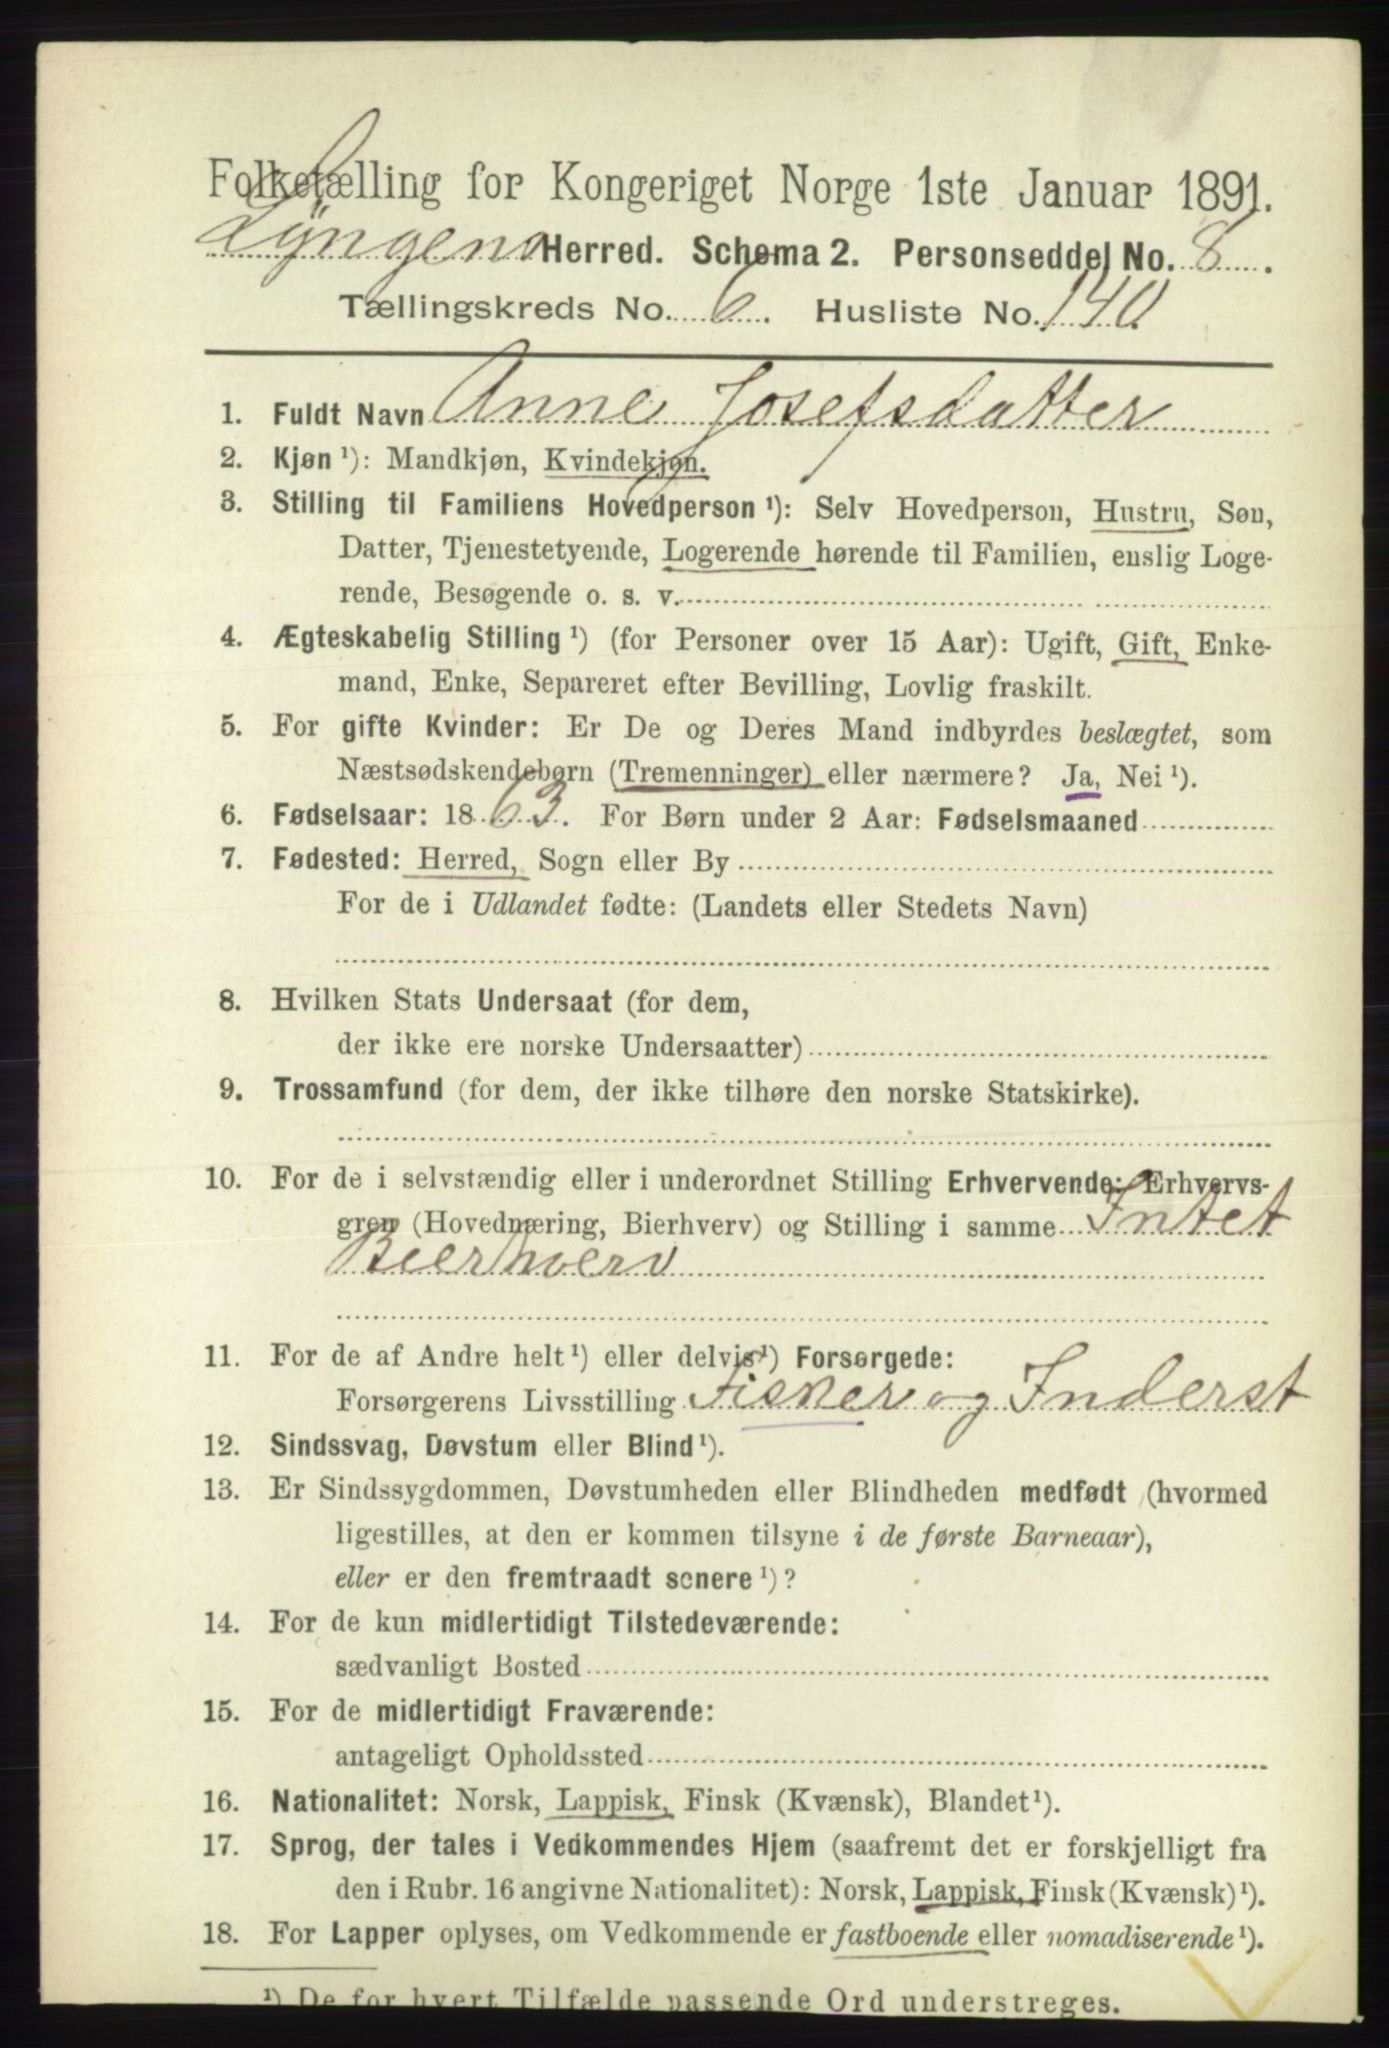 Folketælling for Kongeriget Norge 1ste Januar 1891.
Lyngens Herred. Schema 2. Personseddel No. 8.
Tællingskreds No. 6. Husliste No. 140.
1. Fuldt Navn Anne Josefsdatter
2. Kjøn ¹): Mandkjøn, Kvindekjøn.
3. Stilling til Familiens Hovedperson ¹): Selv Hovedperson, Hustru, Søn,
Datter, Tjenestetyende, Logerende hørende til Familien, enslig Loge-
rende, Besøgende o. s. v.
4. Ægteskabelig Stilling ¹) (for Personer over 15 Aar): Ugift, Gift, Enke-
mand, Enke, Separeret efter Bevilling, Lovlig fraskilt.
5. For gifte Kvinder: Er De og Deres Mand indbyrdes beslægtet, som
Næstsødskendebørn (Tremenninger) eller nærmere? Ja, Nei ¹).
6. Fødselsaar: 1863. For Børn under 2 Aar: Fødselsmaaned
7. Fødested: Herred, Sogn eller By
For de i Udlandet fødte: (Landets eller Stedets Navn)
8. Hvilken Stats Undersaat (for dem,
der ikke ere norske Undersaatter)
9. Trossamfund (for dem, der ikke tilhøre den norske Statskirke).
10. For de i selvstændig eller i underordnet Stilling Erhvervende: Erhvervs-
gren (Hovednæring, Bierhverv) og Stilling i samme Intet
Bierhverv
11. For de af Andre helt ¹) eller delvis ¹) Forsørgede:
Forsørgerens Livsstilling Fisker og Inderst
12. Sindssvag, Døvstum eller Blind ¹).
13. Er Sindssygdommen, Døvstumheden eller Blindheden medfødt (hvormed
ligestilles, at den er kommen tilsyne i de første Barneaar),
eller er den fremtraadt senere ¹)?
14. For de kun midlertidigt Tilstedeværende:
sædvanligt Bosted
15. For de midlertidigt Fraværende:
antageligt Opholdssted
16. Nationalitet: Norsk, Lappisk, Finsk (Kvænsk), Blandet ¹).
17. Sprog, der tales i Vedkommendes Hjem (saafremt det er forskjelligt fra
den i Rubr. 16 angivne Nationalitet): Norsk, Lappisk, Finsk (Kvænsk) ¹).
18. For Lapper oplyses, om Vedkommende er fastboende eller nomadiserende ¹).
¹) De for hvert Tilfælde passende Ord understreges.